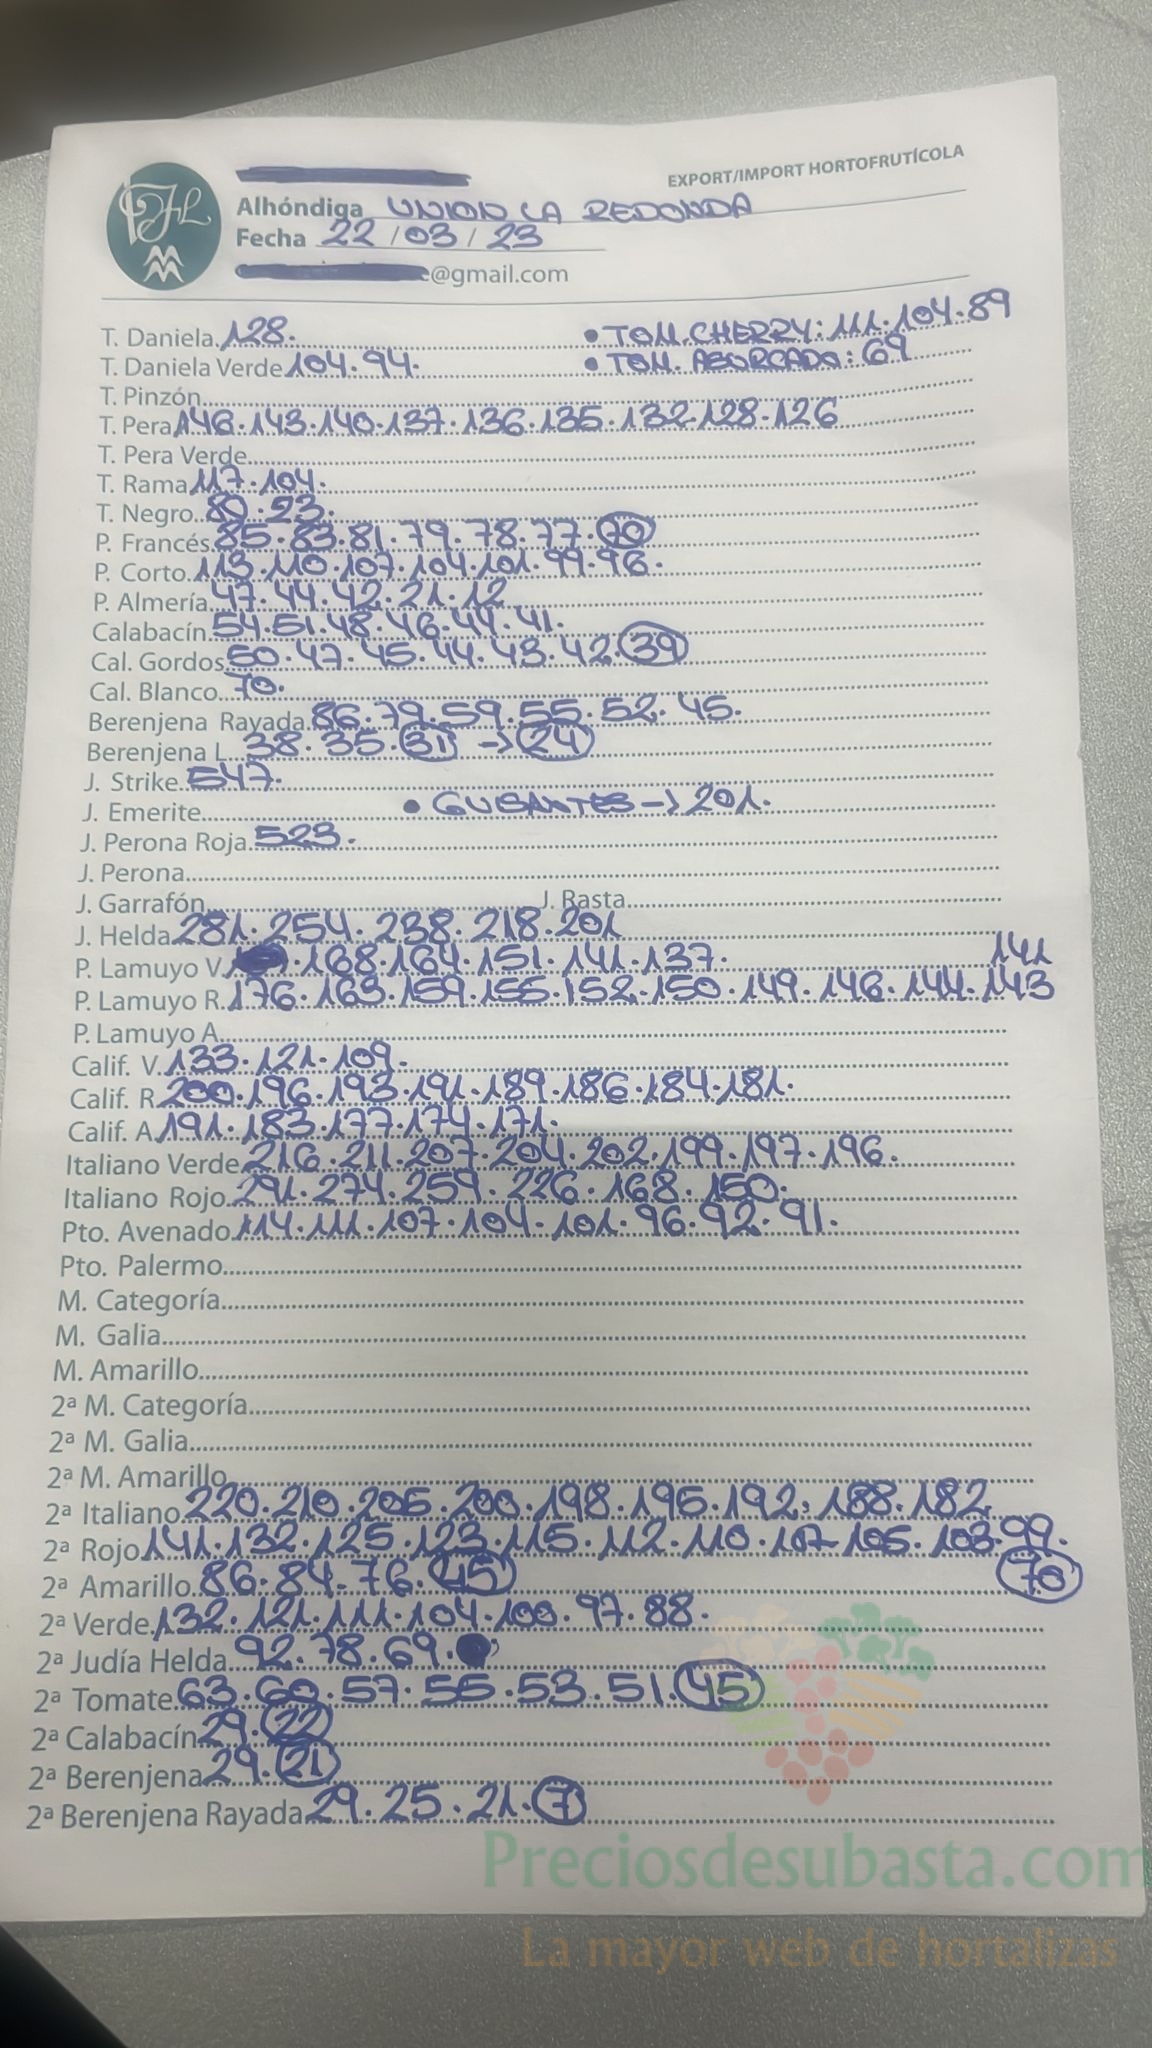 EXPORT/IMPORT HORTOFRUTÍCOLA
Alhóndiga UNION LA REDONDA
Fecha 22/03/23
e@gmail.com
T. Daniela 128. • TOM. CHERRY: 111.104.89
T. Daniela Verde 104.94. • TOM. ASURCADO: 69
T. Pinzón
T. Pera 146.143.140.137.136.135.132.128.126
T. Pera Verde
T. Rama 117.104.
T. Negro 80.23.
P. Francés 85.83.81.79.78.77.70
P. Corto 113.110.107.104.101.99.96.
P. Almería 47.44.42.21.12
Calabacín 54.51.48.46.44.41.
Cal. Gordos 50.47.45.44.43.42.39
Cal. Blanco 70.
Berenjena Rayada 86.79.59.55.52.45.
Berenjena L. 38.35.31 -> 24
J. Strike 547.
J. Emerite • GUISANTES -> 201.
J. Perona Roja 523.
J. Perona
J. Garrafón J. Rasta
J. Helda 281.254.238.218.201
P. Lamuyo V. 168.164.151.141.137.
P. Lamuyo R. 176.163.159.155.152.150.149.146.144.143 141
P. Lamuyo A.
Calif. V. 133.121.109.
Calif. R. 200.196.193.191.189.186.184.181.
Calif. A. 191.183.177.174.171.
Italiano Verde 216.211.207.204.202.199.197.196.
Italiano Rojo 291.274.259.226.168.150.
Pto. Avenado 114.111.107.104.101.96.92.91.
Pto. Palermo
M. Categoría
M. Galia
M. Amarillo
2ª M. Categoría
2ª M. Galia
2ª M. Amarillo
2ª Italiano 220.210.205.200.198.195.192.188.182
2ª Rojo 141.132.125.123.115.112.110.107.105.103.99.
2ª Amarillo 86.84.76.45 70
2ª Verde 132.121.111.104.100.97.88.
2ª Judía Helda 92.78.69.
2ª Tomate 63.60.57.55.53.51.45
2ª Calabacín 29.22
2ª Berenjena 29.21
2ª Berenjena Rayada 29.25.21.7
Preciosdesubasta.com
La mayor web de hortalizas